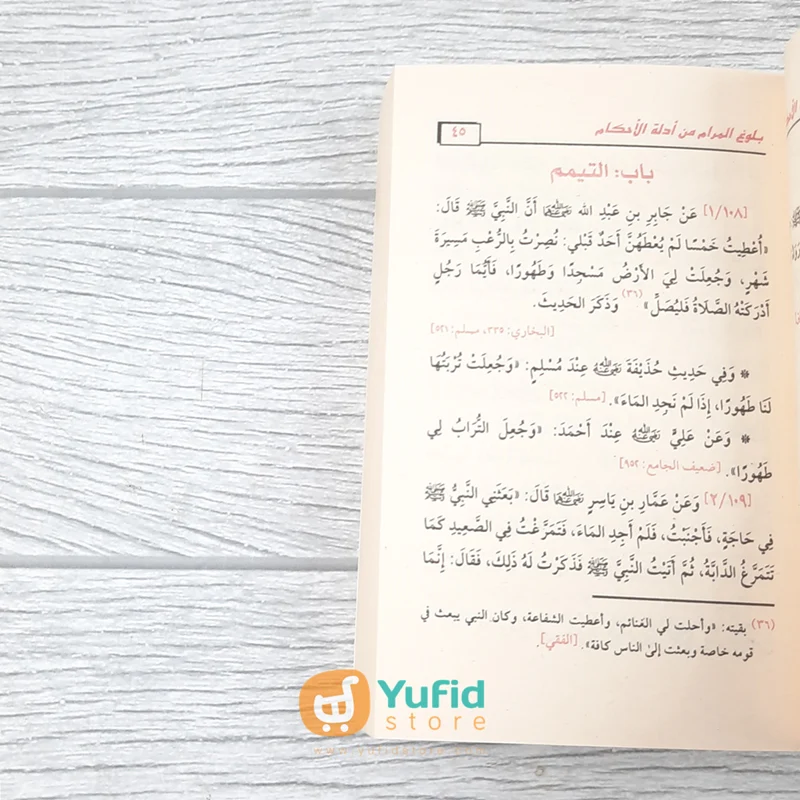 بلوغ المرام من أدلة الأحكام
٤٥
باب: التيمم
[١/١٠٨] عَنْ جَابِرِ بنِ عَبْدِ الله رَضِيَ اللهُ عَنْهُمَا أَنَّ النَّبِيَّ ﷺ قَالَ:
«أُعْطِيتُ خَمْسًا لَمْ يُعْطَهُنَّ أَحَدٌ قَبْلِي: نُصِرْتُ بِالرُّعْبِ مَسِيرَةَ
شَهْرٍ، وَجُعِلَتْ لِيَ الأَرْضُ مَسْجِدًا وَطَهُورًا، فَأَيُّمَا رَجُلٍ
أَدْرَكَتْهُ الصَّلَاةُ فَليُصَلِّ»(٣٦) وَذَكَرَ الحَدِيثَ.
[البخاري: ٣٣٥، مسلم: ٥٢١]
* وَفِي حَدِيثِ حُذَيْفَةَ رَضِيَ اللهُ عَنْهُ عِنْدَ مُسْلِمٍ: «وَجُعِلَتْ تُرْبَتُهَا
لَنَا طَهُورًا، إِذَا لَمْ نَجِدِ المَاءَ». [مسلم: ٥٢٢]
* وَعَنْ عَلِيٍّ رَضِيَ اللهُ عَنْهُ عِنْدَ أَحْمَدَ: «وَجُعِلَ التُّرَابُ لِي
طَهُورًا». [ضعيف الجامع: ٩٥٢]
[٢/١٠٩] وَعَنْ عَمَّارِ بنِ يَاسِرٍ رَضِيَ اللهُ عَنْهُمَا قَالَ: «بَعَثَنِي النَّبِيُّ ﷺ
فِي حَاجَةٍ، فَأَجْنَبْتُ، فَلَمْ أَجِدِ المَاءَ، فَتَمَرَّغْتُ فِي الصَّعِيدِ كَمَا
تَتَمَرَّغُ الدَّابَّةُ، ثُمَّ أَتَيْتُ النَّبِيَّ ﷺ فَذَكَرْتُ لَهُ ذَلِكَ، فَقَالَ: إِنَّمَا
(٣٦) بقيته: «وأحلت لي الغنائم، وأعطيت الشفاعة، وكان النبي يبعث في
قومه خاصة وبعثت إلى الناس كافة». [الفقي].
Yufid
store
www.yufidstore.com